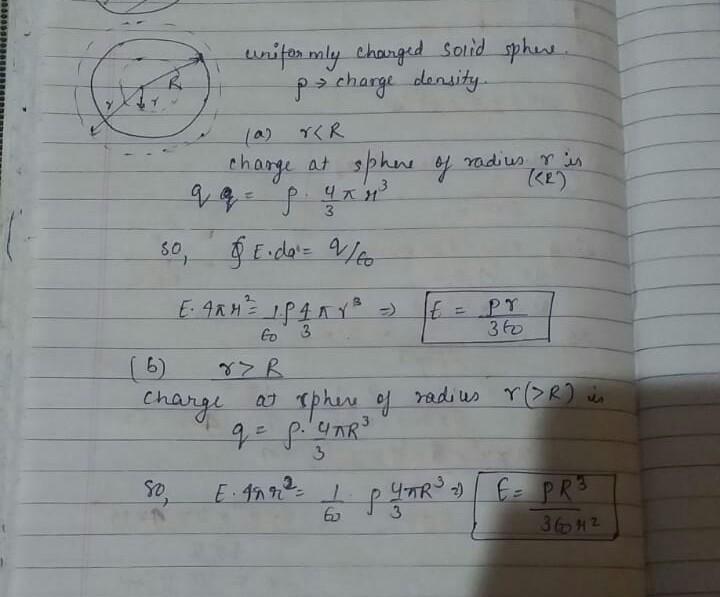 uniformly charged solid sphere.
ρ → charge density.
R
r
r
(a) r<R
charge at sphere of radius r is
(<R)
q q = ρ. 4/3 π r³
so, ∮ E.da = q/ε₀
E. 4πr² = 1/ε₀ ρ 4/3 π r³ ⇒ E = ρr/3ε₀
(b) r > R
charge at sphere of radius r(>R) is
q = ρ. 4πR³/3
so, E. 4πr² = 1/ε₀ . ρ 4πR³/3 ⇒ E = ρR³/3ε₀r²